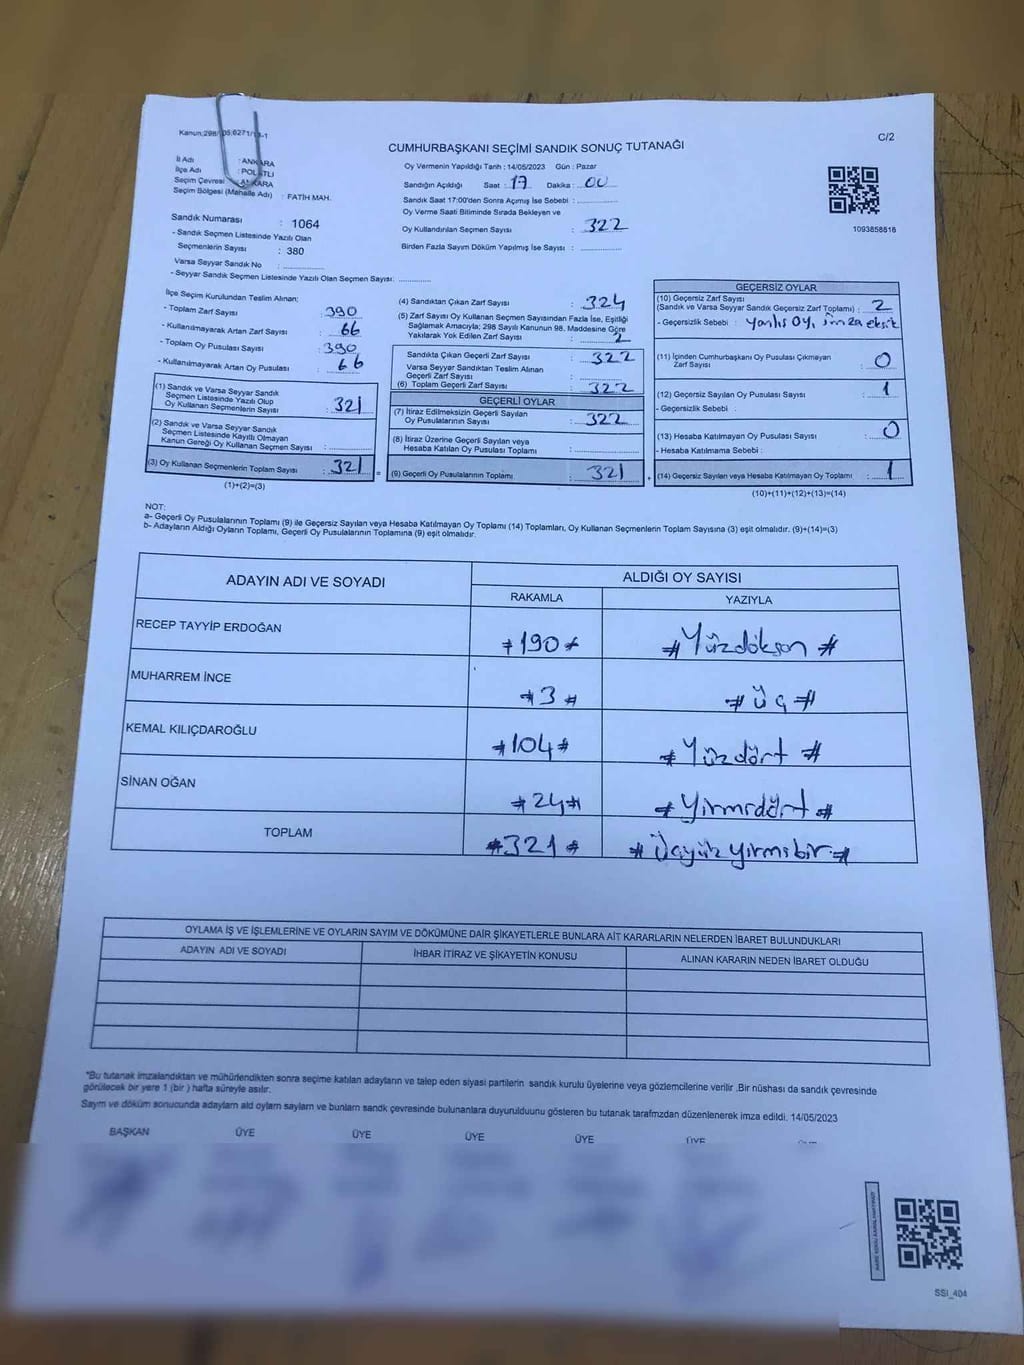 C/2
CUMHURBAŞKANI SEÇİMİ SANDIK SONUÇ TUTANAĞI
İl Adı : ANKARA
İlçe Adı : POLATLI
Seçim Çevresi : ANKARA
Seçim Bölgesi (Mahalle Adı) : FATİH MAH.
Sandık Numarası : 1064
- Sandık Seçmen Listesinde Yazılı Olan
Seçmenlerin Sayısı : 380
Varsa Seyyar Sandık No : ..............
- Seyyar Sandık Seçmen Listesinde Yazılı Olan Seçmen Sayısı: ............
Oy Vermenin Yapıldığı Tarih : 14/05/2023 Gün : Pazar
Sandığın Açıldığı Saat : 17 Dakika : 00
Sandık Saat 17:00'den Sonra Açımış İse Sebebi : ..............
Oy Verme Saati Bitiminde Sırada Bekleyen ve
Oy Kullandırılan Seçmen Sayısı : 322
Birden Fazla Sayım Döküm Yapılmış İse Sayısı : ..............
1093858816
İlçe Seçim Kurulundan Teslim Alınan:
- Toplam Zarf Sayısı : 390
- Kullanılmayarak Artan Zarf Sayısı : 66
- Toplam Oy Pusulası Sayısı : 390
- Kullanılmayarak Artan Oy Pusulası : 66
(1) Sandık ve Varsa Seyyar Sandık
Seçmen Listesinde Yazılı Olup
Oy Kullanan Seçmenlerin Sayısı : 321
(2) Sandık ve Varsa Seyyar Sandık
Seçmen Listesinde Kayıtlı Olmayan
Kanun Gereği Oy Kullanan Seçmen Sayısı : ..............
(3) Oy Kullanan Seçmenlerin Toplam Sayısı : 321 =
(1)+(2)=(3)
(4) Sandıktan Çıkan Zarf Sayısı : 324
(5) Zarf Sayısı Oy Kullanan Seçmen Sayısından Fazla İse, Eşitliği
Sağlamak Amacıyla; 298 Sayılı Kanunun 98. Maddesine Göre
Yakılarak Yok Edilen Zarf Sayısı : 2
Sandıkta Çıkan Geçerli Zarf Sayısı : 322
Varsa Seyyar Sandıktan Teslim Alınan
Geçerli Zarf Sayısı : ..............
(6) Toplam Geçerli Zarf Sayısı : 322
GEÇERLİ OYLAR
(7) İtiraz Edilmeksizin Geçerli Sayılan
Oy Pusulalarının Sayısı : 322
(8) İtiraz Üzerine Geçerli Sayılan veya
Hesaba Katılan Oy Pusulası Toplamı : ..............
(9) Geçerli Oy Pusulalarının Toplamı : 321 +
GEÇERSİZ OYLAR
(10) Geçersiz Zarf Sayısı
(Sandık ve Varsa Seyyar Sandık Geçersiz Zarf Toplamı) : 2
- Geçersizlik Sebebi : yanlış oy, imza eksik
(11) İçinden Cumhurbaşkanı Oy Pusulası Çıkmayan
Zarf Sayısı : 0
(12) Geçersiz Sayılan Oy Pusulası Sayısı : 1
- Geçersizlik Sebebi :
(13) Hesaba Katılmayan Oy Pusulası Sayısı : 0
- Hesaba Katılmama Sebebi :
(14) Geçersiz Sayılan veya Hesaba Katılmayan Oy Toplamı : 1
(10)+(11)+(12)+(13)=(14)
NOT:
a- Geçerli Oy Pusulalarının Toplamı (9) ile Geçersiz Sayılan veya Hesaba Katılmayan Oy Toplamı (14) Toplamları, Oy Kullanan Seçmenlerin Toplam Sayısına (3) eşit olmalıdır. (9)+(14)=(3)
b- Adayların Aldığı Oyların Toplamı, Geçerli Oy Pusulalarının Toplamına (9) eşit olmalıdır.
ADAYIN ADI VE SOYADI
ALDIĞI OY SAYISI
RAKAMLA YAZIYLA
RECEP TAYYİP ERDOĞAN #190# #Yüzdoksan#
MUHARREM İNCE #3# #üç#
KEMAL KILIÇDAROĞLU #104# #Yüzdört#
SİNAN OĞAN #24# #Yirmidört#
TOPLAM #321# #Üçyüz yirmibir#
OYLAMA İŞ VE İŞLEMLERİNE VE OYLARIN SAYIM VE DÖKÜMÜNE DAİR ŞİKAYETLERLE BUNLARA AİT KARARLARIN NELERDEN İBARET BULUNDUKLARI
ADAYIN ADI VE SOYADI İHBAR İTİRAZ VE ŞİKAYETİN KONUSU ALINAN KARARIN NEDEN İBARET OLDUĞU
*Bu tutanak imzalandıktan ve mühürlendikten sonra seçime katılan adayların ve talep eden siyasi partilerin sandık kurulu üyelerine veya gözlemcilerine verilir .Bir nüshası da sandık çevresinde
görülecek bir yere 1 (bir ) hafta süreyle asılır.
Sayım ve döküm sonucunda adayların ald oyların sayların ve bunların sandk çevresinde bulunanlara duyurulduunu gösteren bu tutanak tarafmzdan düzenlenerek imza edildi. 14/05/2023
BAŞKAN ÜYE ÜYE ÜYE ÜYE ÜYE
SSI_404